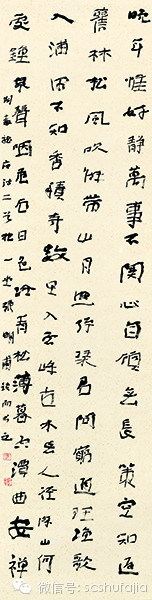 晚年惟好静萬事不關心自顧無長策空知返
舊林松風吹解帶山月照弹琴君問窮通理漁歌
入浦深不知香積寺數里入云峰古木無人径深山何
處鐘泉聲咽危石日色冷青松薄暮空潭曲安禅
制毒龍右詩二首
微信号: scshufajia